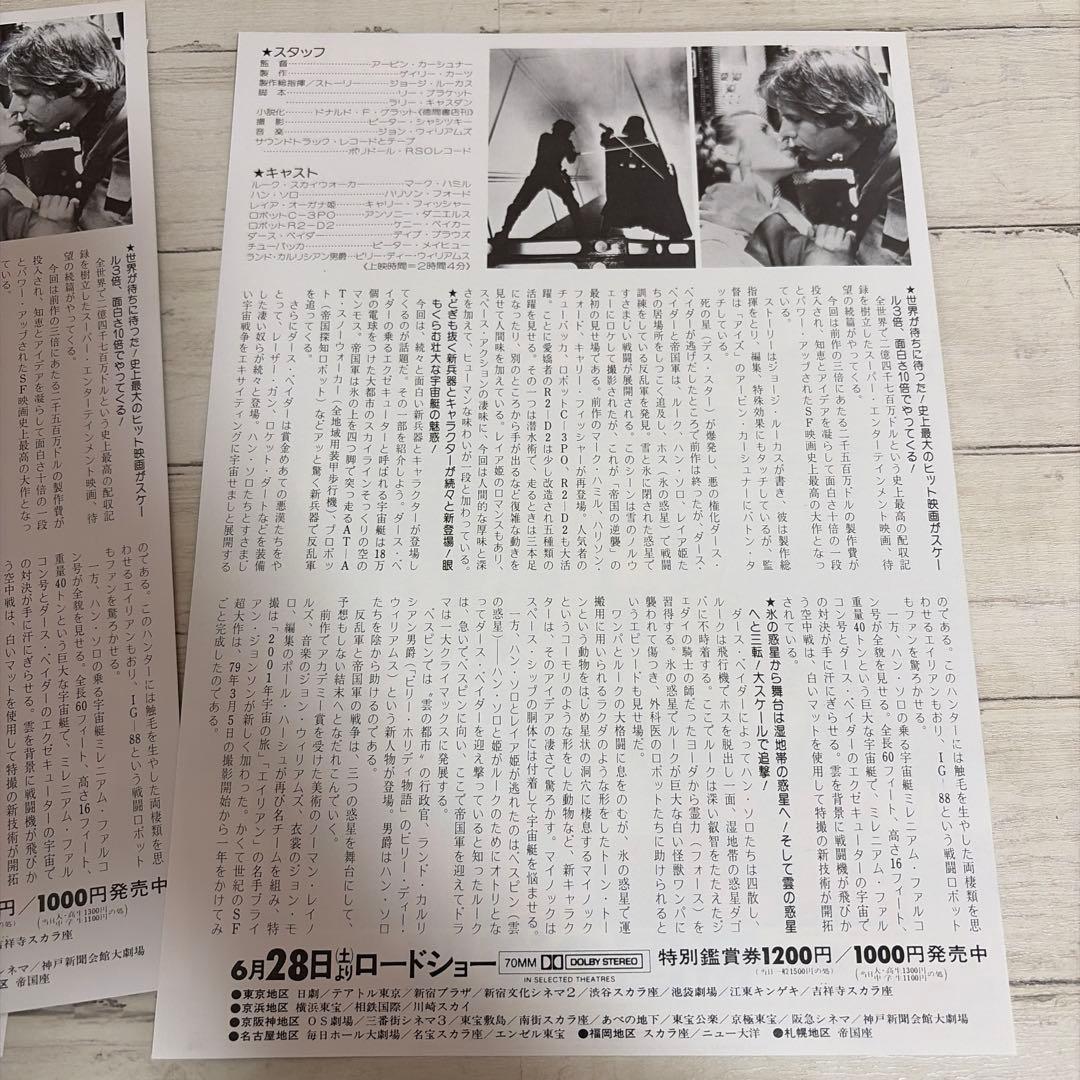 ★スタッフ
監督………アービン・カーシュナー
製作………ゲイリー・カーツ
製作総指揮／ストーリー……ジョージ・ルーカス
脚本………リー・ブラケット
ラリー・キャスダン
小説化……ドナルド・F・グラット《徳間書店刊》
撮影………ピーター・シャシツキー
音楽………ジョン・ウィリアムズ
サウンドトラック・レコードとテープ
………ポリドール・RSOレコード
★キャスト
ルーク・スカイウォーカー………マーク・ハミル
ハン・ソロ………ハリソン・フォード
レイア・オーガナ姫………キャリー・フィッシャー
ロボットC-3PO………アンソニー・ダニエルス
ロボットR2-D2………ケニー・ベイカー
ダース・ベイダー………デイブ・プラウズ
チューバッカ………ピーター・メイヒュー
ランド・カルリシアン男爵・ビリー・ディー・ウィリアムス
《上映時間=2時間4分》
★世界が待ちに待った！史上最大のヒット映画がスケー
ル3倍、面白さ10倍でやってくる！
全世界で二億四千七百万ドルという史上最高の配収記
録を樹立したスーパー・エンターテインメント映画、待
望の続篇がやってくる。
今回は前作の三倍にあたる二千五百万ドルの製作費が
投入され、知恵とアイデアを凝らして面白さ十倍の一段
とパワー・アップされたSF映画史上最高の大作となっ
ている。
ストーリーはジョージ・ルーカスが書き、彼は製作総
指揮をとり、編集、特殊効果にもタッチしているが、監
督は「アイズ」のアービン・カーシュナーにバトン・タ
ッチしている。
死の星（デス・スター）が爆発し、悪の権化ダース・
ベイダーが逃げだしたところで前作は終ったが、ダース・
ベイダーと帝国軍は、ルーク、ハン・ソロ、レイア姫た
ちの居場所をしつこく追及し、ホス（氷の惑星）で戦闘
訓練をしている反乱軍を発見。雪と氷に閉された惑星で
すさまじい戦闘が展開される。このシーンは雪のノルウ
ェーにロケして撮影されたが、これが「帝国の逆襲」の
最初の見せ場である。前作のマーク・ハミル、ハリソン・
フォード、キャリー・フィッシャーが再登場。人気者の
チューバッカ、ロボットC-3PO、R2-D2も大活
躍。ことに愛嬌者のR2-D2は少し改造され五種類の
活躍を見せる。その一つは潜水術で、走るときは三本足
になったり、別のところから手が出るなど複雑な動きを
見せて人間味を加えている。レイア姫のロマンスもあり、
スペース・アクションの凄味に、今回は人間的な厚味と深
さを加えて、ヒューマンな味わいが一段と加わっている。
★どぎも抜く新兵器とキャラクターが続々と新登場！眼
もくらむ壮大な宇宙艇の魅惑！
今回は、続々と面白い新兵器とキャラクターが登場し
てくるのが話題だ。その一部を紹介しよう。ダース・ベ
イダーの乗るエクゼキューターと呼ばれる宇宙艇は18万
個の電球をつけた大都市のスカイラインそっくりの空の
マンモス。帝国軍は氷の上を四つ脚で突っ走るAT-A
T・スノーウォーカー（全地域用装甲歩行機）プロボッ
ト（帝国探知ロボット）などアッと驚く新兵器で反乱軍
を追ってくる。
さらにダース・ベイダーは賞金めあての悪漢たちをや
とって、レーザー・ガン、ロケット・ダートなどを装備
した凄い奴らが続々と登場。ハン・ソロたちとすさまじ
い宇宙戦争をエキサイティングに宇宙せましと展開する
のである。このハンターには触毛を生やした両棲類を思
わせるエイリアンもおり、IG-88という戦闘ロボット
もファンを驚ろかせる。
一方、ハン・ソロの乗る宇宙艇ミレニアム・ファルコ
ン号が全貌を見せる。全長60フィート、高さ16フィート、
重量40トンという巨大な宇宙艇で、ミレニアム・ファル
コン号とダース・ベイダーのエクゼキューターの宇宙で
の対決が手に汗にぎらせる。雲を背景に戦闘機が飛びか
う空中戦は、白いマットを使用して特撮の新技術が開拓
されている。
★氷の惑星から舞台は湿地帯の惑星へ！そして雲の惑星
へと三転！大スケールで追撃！
ダース・ベイダーによってハン・ソロたちは四散し、
ルークは飛行機でホスを脱出し一面、湿地帯の惑星ダゴ
バに不時着する。ここでルークは深い叡智をたたえたジ
ェダイの騎士の師だったヨーダから霊力（フォース）を
習得する。氷の惑星でルークが巨大な白い怪獣ワンパに
襲われて傷つき、外科医のロボットたちに助けられると
いうエピソードも見せ場だ。
ワンパとルークの大格闘に息をのむが、氷の惑星で運
搬用に用いられるラクダのような形をしたトーン・トー
ンという動物をはじめ星状の洞穴に棲息するマイノック
というコーモリのような形をした動物など、新キャラク
ターは、そのアイデアの凄さで驚ろかす。マイノックは
スペース・シップの胴体には付着して宇宙艇を悩ませる。
一方、ハン・ソロとレイア姫が逃れたのはベスピン（雲
の惑星）――ハン・ソロと姫がルークのためにオトリとな
ってダース・ベイダーを迎え撃っていると知ったルーク
は、急いでベスピンに向い、ここで帝国軍を迎えてドラ
マは一大クライマックスに発展する。
ベスピンでは〝雲の都市〟の行政官、ランド・カルリ
シアン男爵（「ビリー・ホリディ物語」のビリー・ディー・
ウイリアムス）という新人物が登場、男爵はハン・ソロ
たちを陰から助けるのである。
かくて宇宙の戦争は、三つの惑星を舞台にして、
予想もしない結末へとなだれこんでいく。
前作でアカデミー賞を受けた美術のノーマン・レイノ
ルズ、音楽のジョン・ウィリアムズ、衣裳のジョン・モ
ロ、編集のポール・ハーシュが再び名チームを組み、特
撮は「2001年宇宙の旅」「エイリアン」の名手ブライ
アン・ジョンソンが新しく加わった。かくて世紀のSF
超大作は、79年3月5日の撮影開始から一年をかけてみ
ごと完成したのである。
6月28日(土)よりロードショー
70MM DOLBY STEREO
IN SELECTED THEATRES
特別鑑賞券1200円／1000円発売中
(当日一般1500円の処)
(当日大・高生1300円 中学生1100円の処)
●東京地区 日劇／テアトル東京／新宿プラザ／新宿文化シネマ2／渋谷スカラ座／池袋劇場／江東キンゲキ／吉祥寺スカラ座
●京浜地区 横浜東宝／相鉄国際／川崎スカイ
●京阪神地区 OS劇場／三番街シネマ3／東宝敷島／南街スカラ座／あべの地下／東宝公楽／京極東宝／阪急シネマ／神戸新聞会館大劇場
●名古屋地区 毎日ホール大劇場／名宝スカラ座／エンゼル東宝 ●福岡地区 スカラ座／ニュー大洋 ●札幌地区 帝国座
★世界が待ちに待った！史上最大のヒット映画がスケー
ル3倍、面白さ10倍でやってくる！
全世界で二億四千七百万ドルという史上最高の配収記
録を樹立したスーパー・エンターテインメント映画、待
望の続篇がやってくる。
今回は前作の三倍にあたる二千五百万ドルの製作費が
投入され、知恵とアイデアを凝らして面白さ十倍の一段
とパワー・アップされたSF映画史上最高の大作となっ
ている。
のである。このハンターには触毛を生やした両棲類を思
わせるエイリアンもおり、IG-88という戦闘ロボット
もファンを驚ろかせる。
一方、ハン・ソロの乗る宇宙艇ミレニアム・ファルコ
ン号が全貌を見せる。全長60フィート、高さ16フィート、
重量40トンという巨大な宇宙艇で、ミレニアム・ファル
コン号とダース・ベイダーのエクゼキューターの宇宙で
の対決が手に汗にぎらせる。雲を背景に戦闘機が飛びか
う空中戦は、白いマットを使用して特撮の新技術が開拓
円／1000円発売中
(当日大・高生1300円 中学生1100円の処)
吉祥寺スカラ座
シネマ／神戸新聞会館大劇場
地区 帝国座